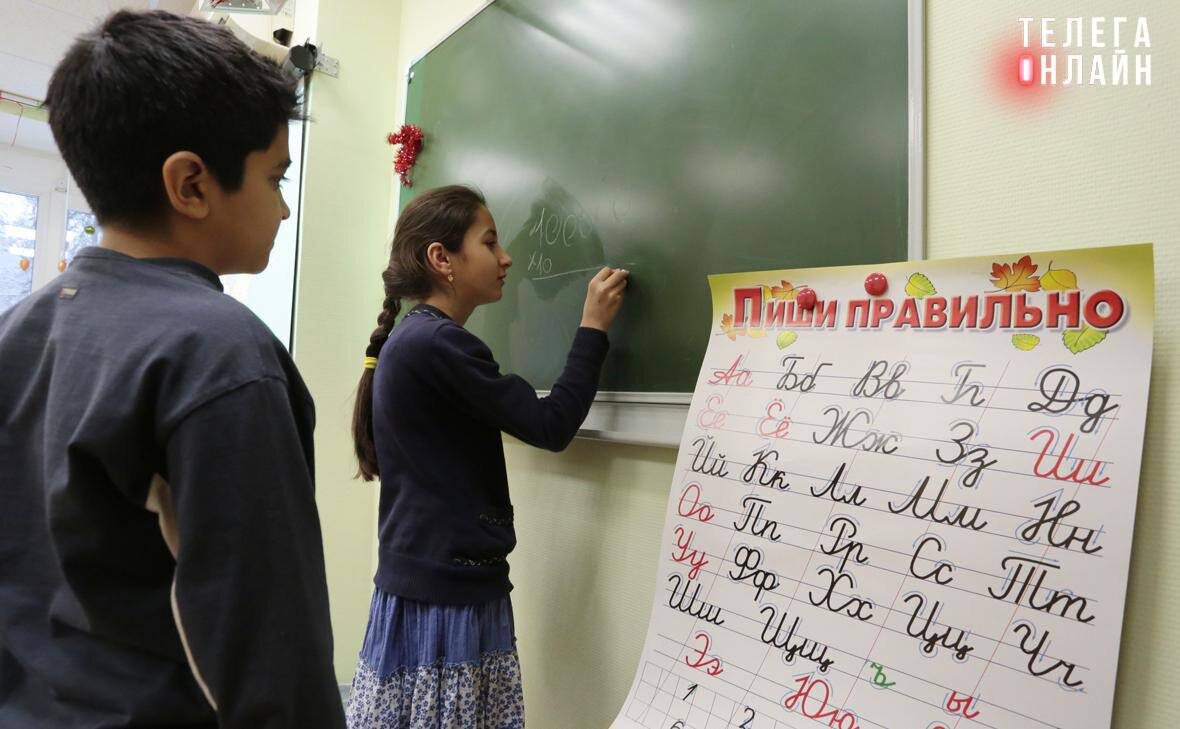 ТЕЛЕГА
ОНЛАЙН
1000
Пиши правильно
Аа Бб Вв Гг Дд
Ее Ёё Жж Зз Ии
Йй Кк Лл Мм Нн
Оо Пп Рр Сс Тт
Уу Фф Хх Цц Чч
Шш Щщ ъ ы
Ээ Юю
1 2